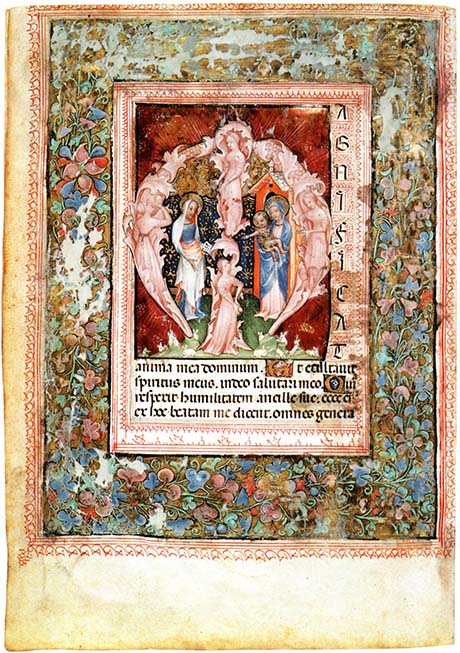 MAGNIFICAT
anima mea dominum. Et exultauit
spiritus meus. indeo salutari meo. Qui
respexit humilitatem ancille sue. ecce ei
ex hoc beatam me dicent. omnes genera